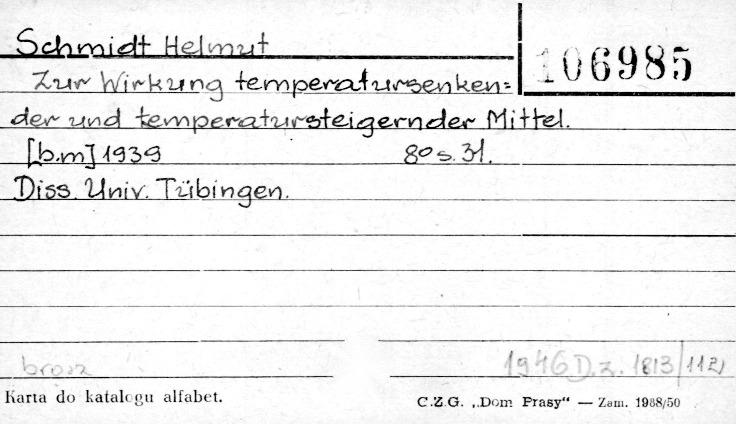 Schmidt Helmut
106985
Zur Wirkung temperatursenken=
der und temperatursteigernder Mittel.
[b.m] 1939 8° s. 31.
Diss. Univ. Tübingen.
brosz
1946 D.z. 1813/112
Karta do katalogu alfabet.
C.Z.G. „Dom Prasy“ — Zam. 1988/50